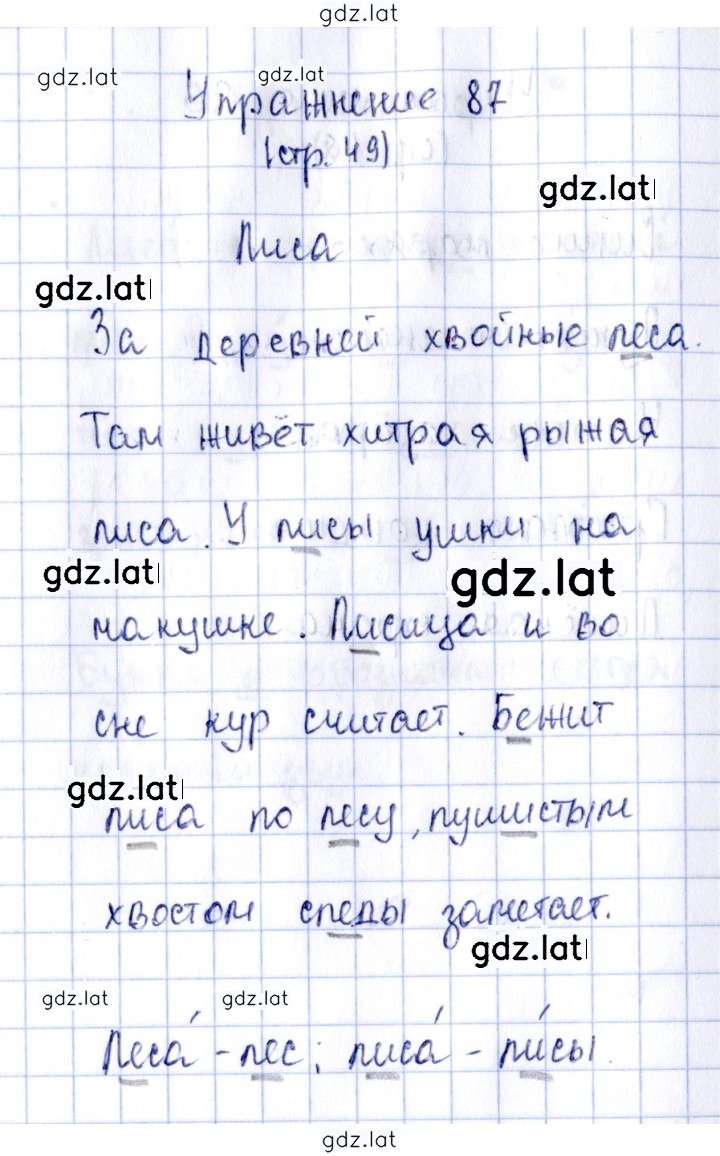 gdz.lat
gdz.lat gdz.lat
Упражнение 87
(стр. 49)
gdz.lat
Лиса
gdz.lat
За деревней хвойные леса.
Там живёт хитрая рыжая
лиса. У лисы ушки на
gdz.lat gdz.lat
макушке. Лисица и во
сне кур считает. Бежит
gdz.lat
лиса по лесу, пушистым
хвостом следы заметает.
gdz.lat
gdz.lat gdz.lat
Леса́ - лес; лиса́ - ли́сы.
gdz.lat